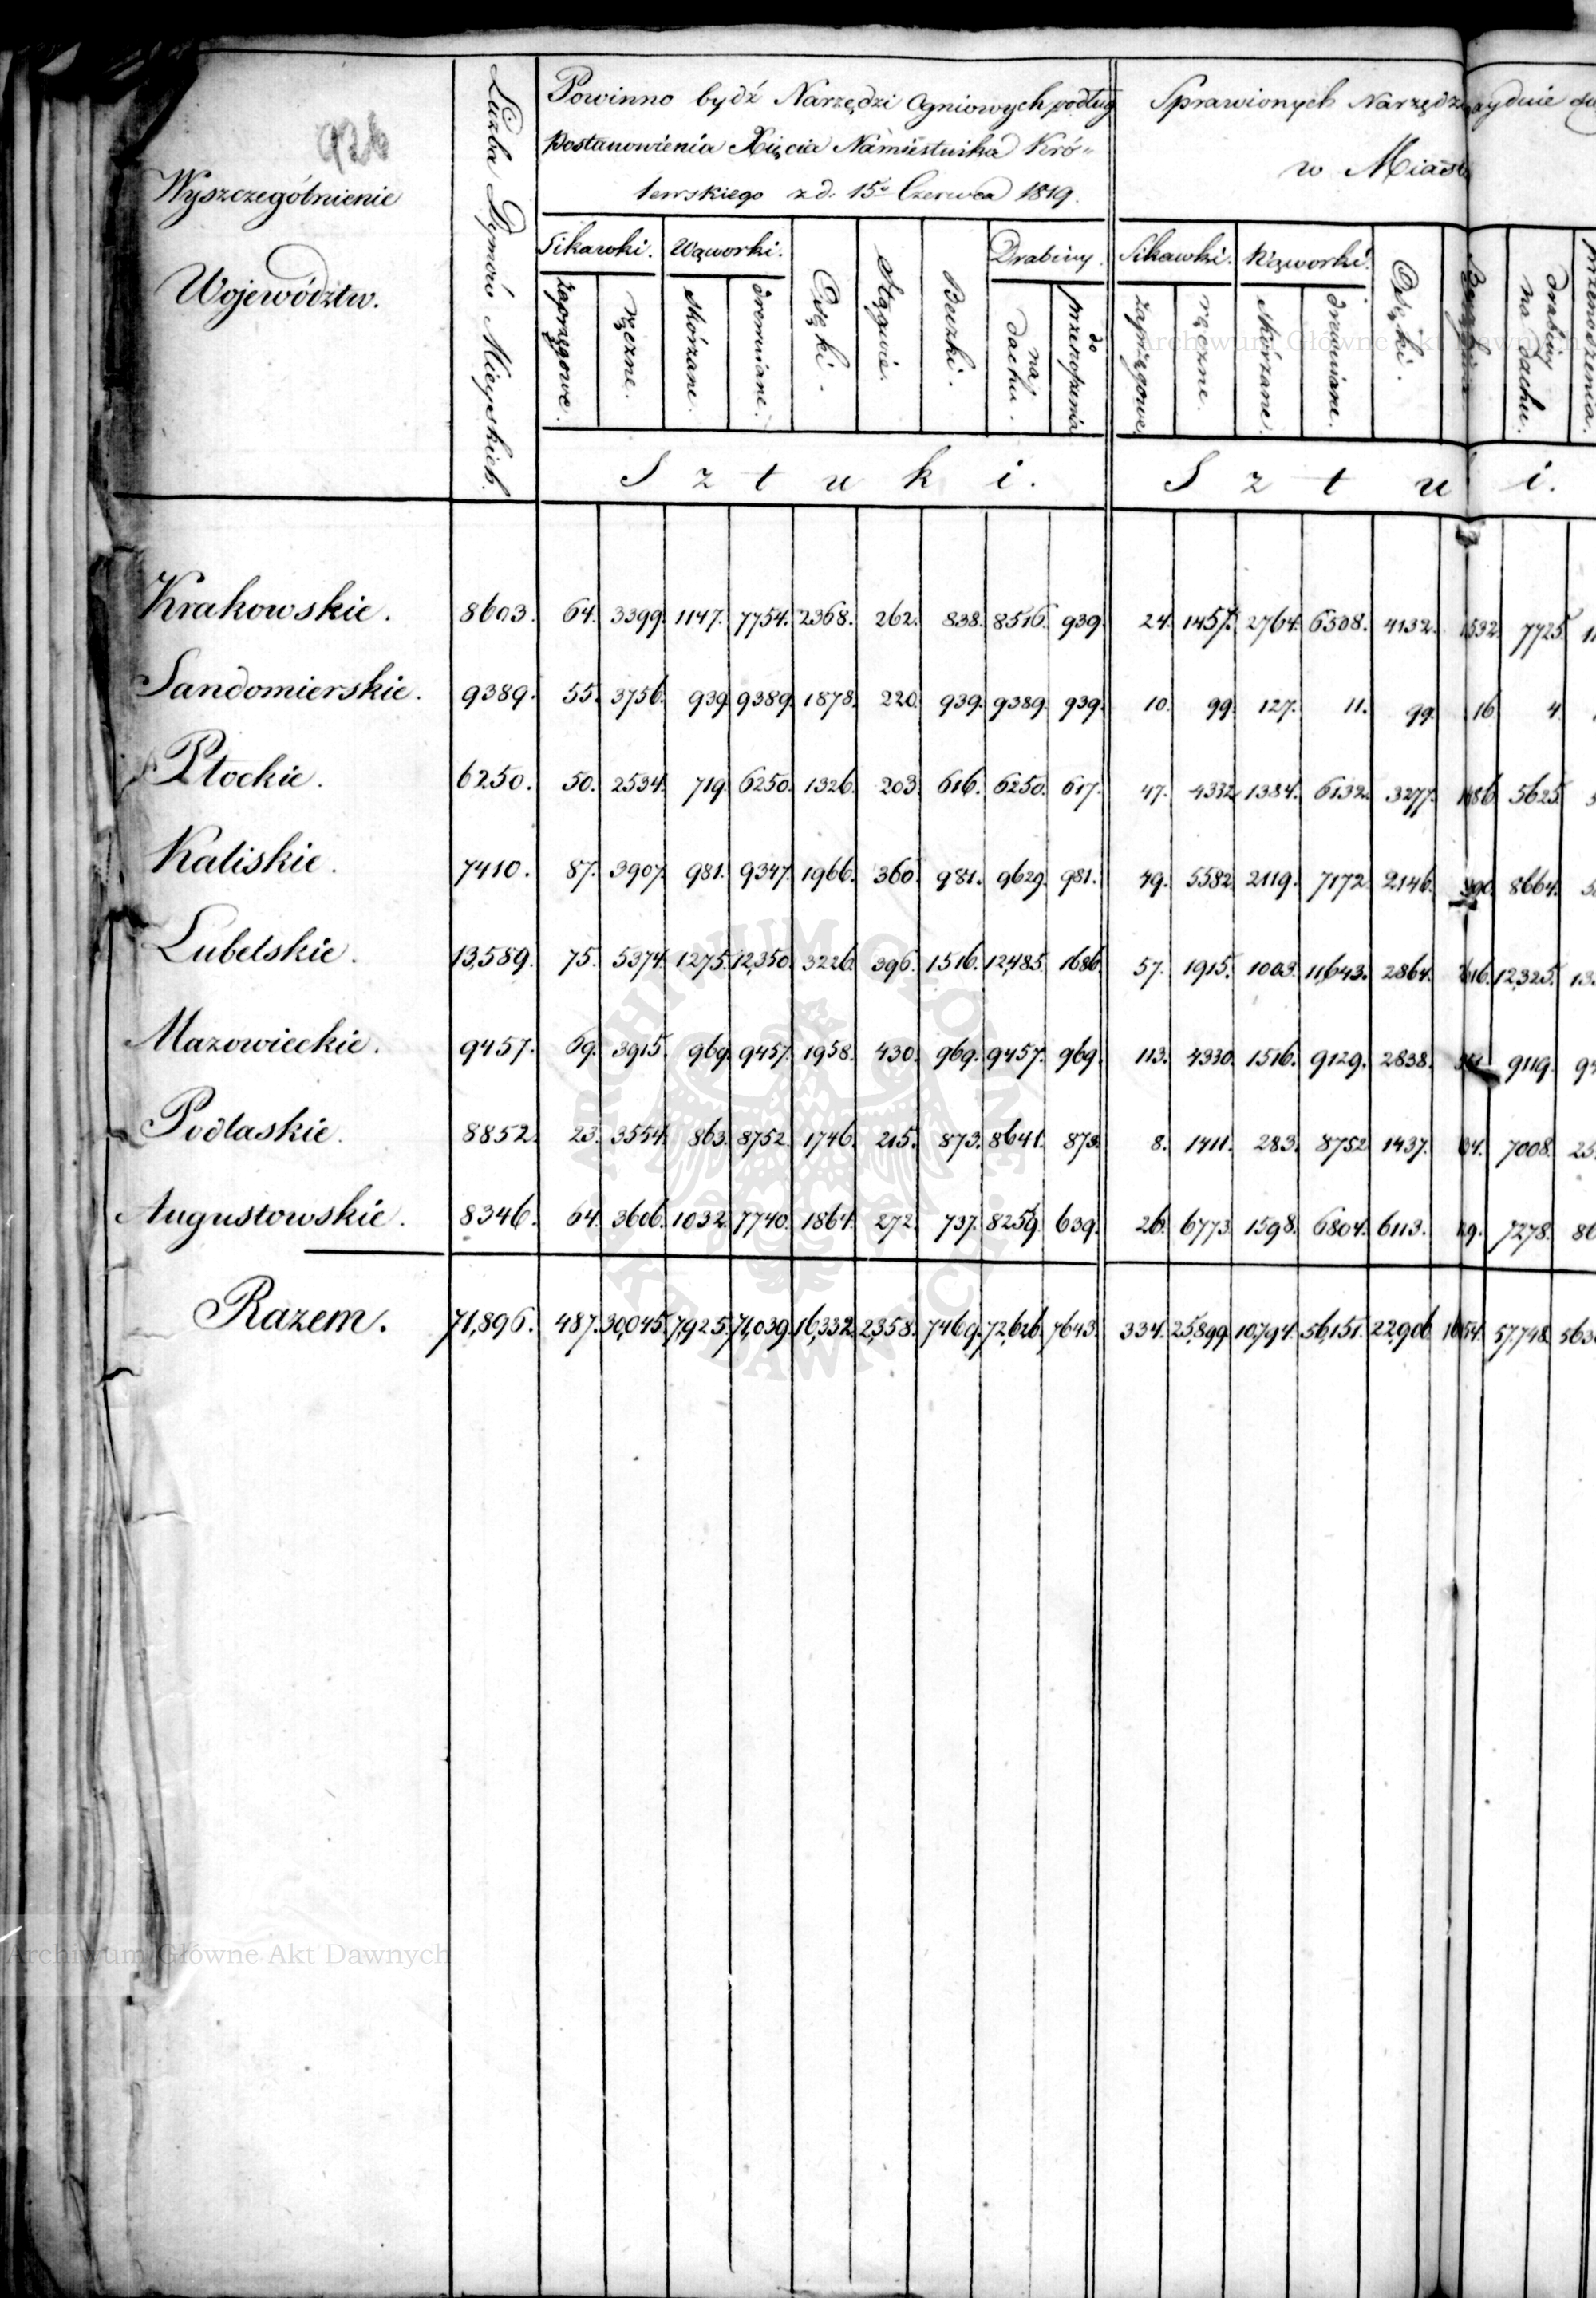 926
Wyszczególnienie
Województw.
Liczba Dymów Mieyskich.
Powinno bydź Narzędzi Ogniowych podług
Postanowienia Xięcia Namiestnika Kró-
lewskiego z d. 15º Czerwca 1819.
Sprawionych Narzędzi
w Miast
Sikawki. Wąworki. Osęki. Stągwie. Beczki. Drabiny.
zaprzęgowe. ręczne. skórzane. drewniane. na dachu. do przenoszenia
Sikawki. Wąworki. Osęki.
zaprzęgowe. ręczne. skórzane. drewniane. drabiny na dachu. przenoszenia.
S z t u k i .
S z t u i .
Krakowskie. 8603. 64. 3399. 1147. 7754. 2368. 262. 838. 8516. 939. 24. 1457. 2764. 6508. 4132. 1532. 7725.
Sandomierskie. 9389. 55. 3756. 939. 9389. 1878. 220. 939. 9389. 939. 10. 99. 127. 11. 99. 16. 4.
Płockie. 6250. 50. 2534. 719. 6250. 1326. 203. 616. 6250. 617. 47. 4332. 1384. 6132. 3277. 5625.
Kaliskie. 7410. 87. 3907. 981. 9347. 1966. 360. 981. 9629. 981. 49. 5582. 2119. 7172. 2146. 8664.
Lubelskie. 13,589. 75. 5374. 1275. 12,350. 3226. 396. 1516. 12,485. 1686. 57. 1915. 1003. 11,643. 2864. 12,325.
Mazowieckie. 9457. 69. 3915. 969. 9457. 1958. 430. 969. 9457. 969. 113. 4330. 1516. 9129. 2838. 9119.
Podlaskie. 8852. 23. 3554. 863. 8752. 1746. 215. 873. 8641. 873. 8. 1411. 283. 8752. 1437. 7008.
Augustowskie. 8346. 64. 3606. 1032. 7740. 1864. 272. 737. 8259. 639. 26. 6773. 1598. 6804. 6113. 7278.
Razem. 71,896. 487. 30,045. 7,925. 71,039. 16,332. 2,358. 7469. 72,626. 7643. 334. 25,899. 10,794. 56,151. 22,906. 57,748.
Archiwum Główne Akt Dawnych
ARCHIWUM GŁÓWNE AKT DAWNYCH
Archiwum Główne Akt Dawnych